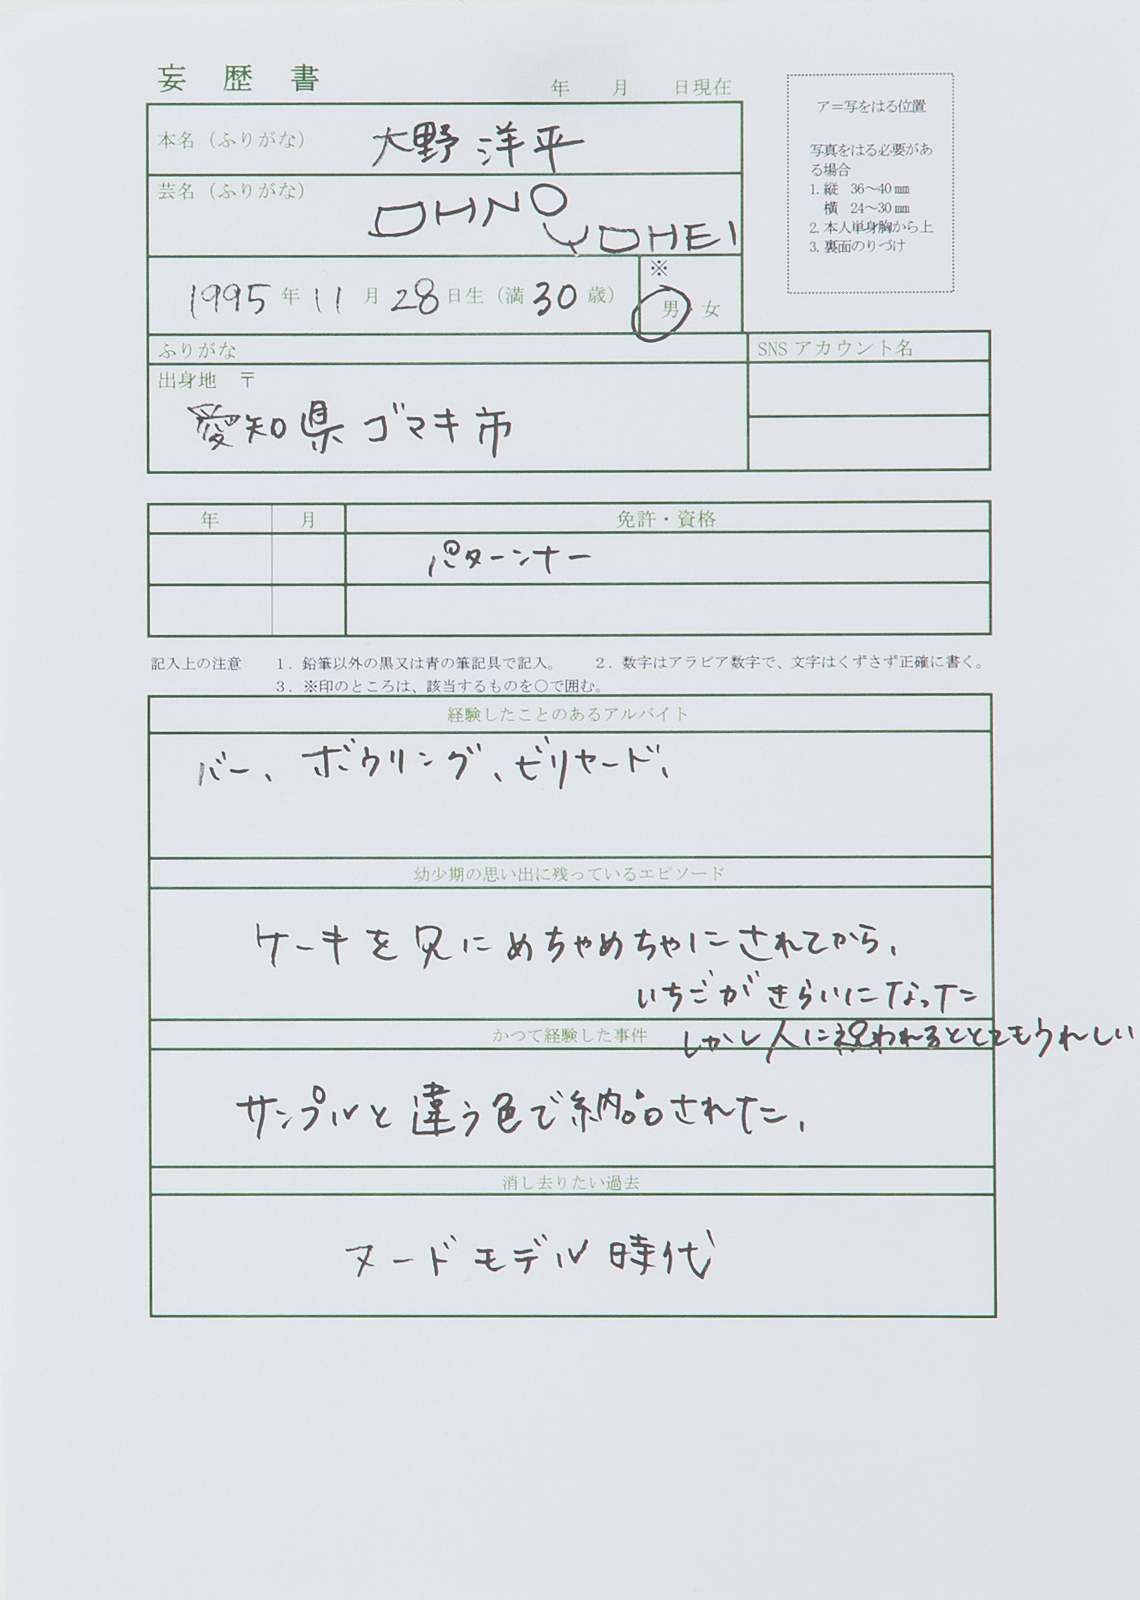 妄歴書
年 月 日現在
ア=写をはる位置
写真をはる必要があ
る場合
1. 縦 36〜40㎜
横 24〜30㎜
2. 本人単身胸から上
3. 裏面のりづけ
本名(ふりがな) 大野洋平
芸名(ふりがな) OHNO
YOHEI
1995年11月28日生(満30歳)
※
男・女
ふりがな
SNS アカウント名
出身地 〒
愛知県ゴマキ市
年 月 免許・資格
パターンナー
記入上の注意 1. 鉛筆以外の黒又は青の筆記具で記入。 2. 数字はアラビア数字で、文字はくずさず正確に書く。
3. ※印のところは、該当するものを○で囲む。
経験したことのあるアルバイト
バー、ボウリング、ビリヤード、
幼少期の思い出に残っているエピソード
ケーキを兄にめちゃめちゃにされてから、
いちごがきらいになった
かつて経験した事件
しかし人に祝われるととてもうれしい
サンプルと違う色で納品された、
消し去りたい過去
ヌードモデル時代